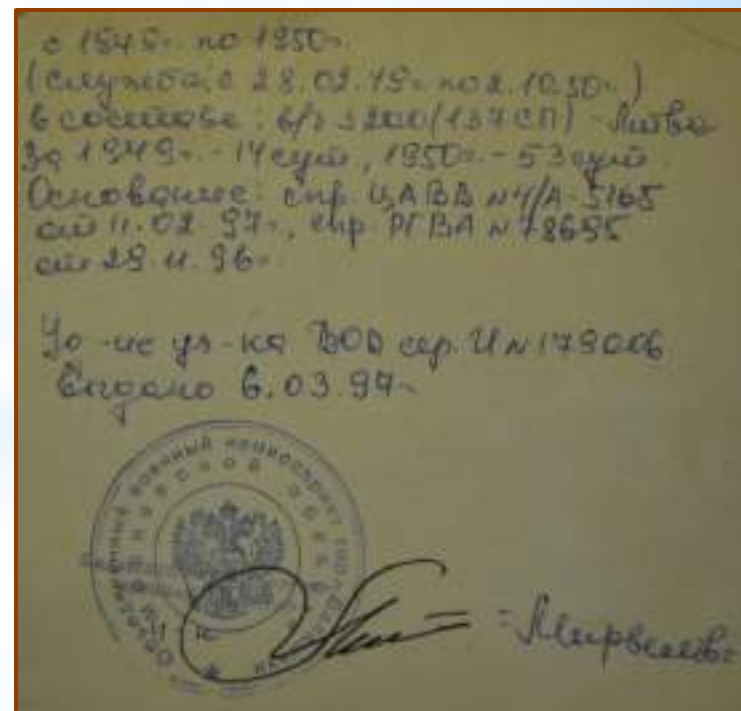 с 1949г. по 1950г.
(служба с 28.02.49г. по 2.10.50г.)
в составе: в/ч 3200 (137 СП) - Литва
За 1949г. - 14 сут, 1950г. - 53 сут.
Основание: спр. ЦАВВ №4/А-5165
от 11.02.97г., спр. РГВА № 78695
от 29.11.96г.
Уд-ие уч-ка ВОВ сер. И № 179006
Выдано 6.03.97г.
военный комиссариат